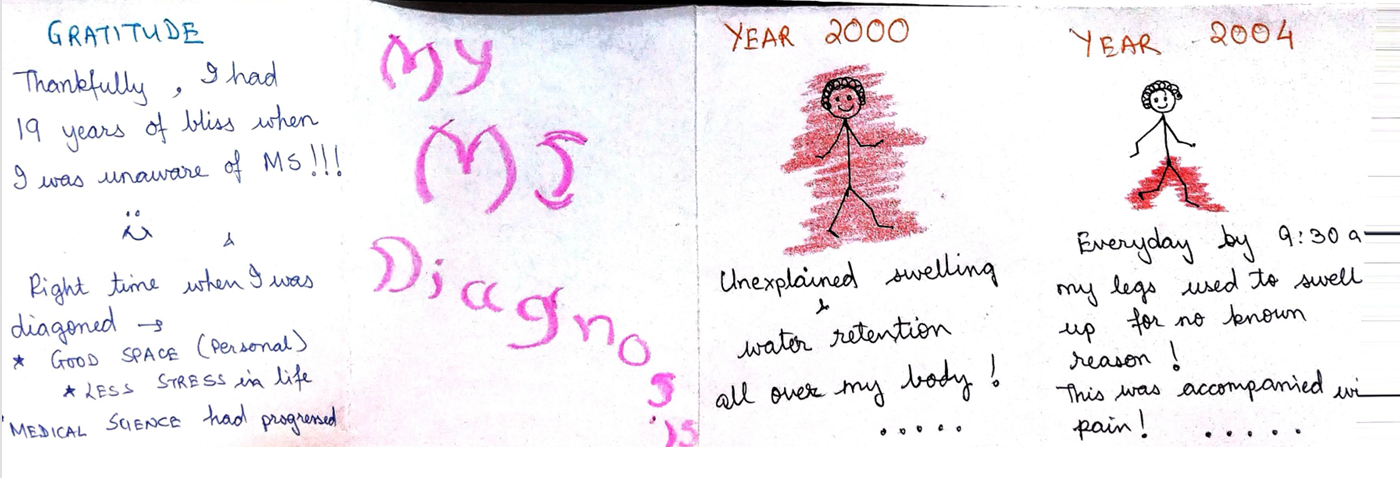 GRATITUDE
Thankfully, I had
19 years of bliss when
I was unaware of MS!!!
&
Right time when I was
diagoned →
* GOOD SPACE (Personal)
* LESS STRESS in life
MEDICAL SCIENCE had progressed
My
MS
Diagnosis
YEAR 2000
Unexplained swelling
&
water retention
all over my body!
.....
YEAR 2004
Everyday by 9:30 a
my legs used to swell
up for no known
reason!
This was accompanied wi
pain! .....